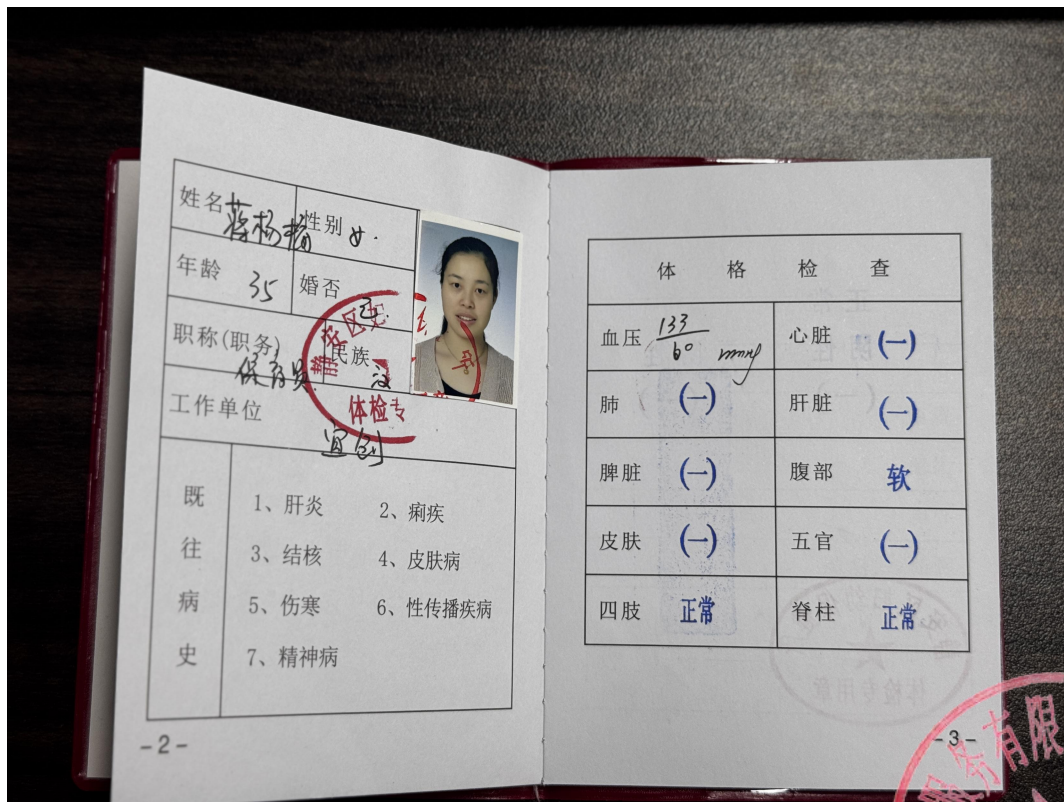 姓名 蒋杨楠 性别 女.
年龄 35 婚否 已
职称(职务) 保育员 民族 汉
工作单位 宜创
静安区
体检专
既往病史
1、肝炎 2、痢疾
3、结核 4、皮肤病
5、伤寒 6、性传播疾病
7、精神病
-2-
体格检查
血压 133/60 mmHg 心脏 (一)
肺 (一) 肝脏 (一)
脾脏 (一) 腹部 软
皮肤 (一) 五官 (一)
四肢 正常 脊柱 正常
体检专用章
-3-
服务有限